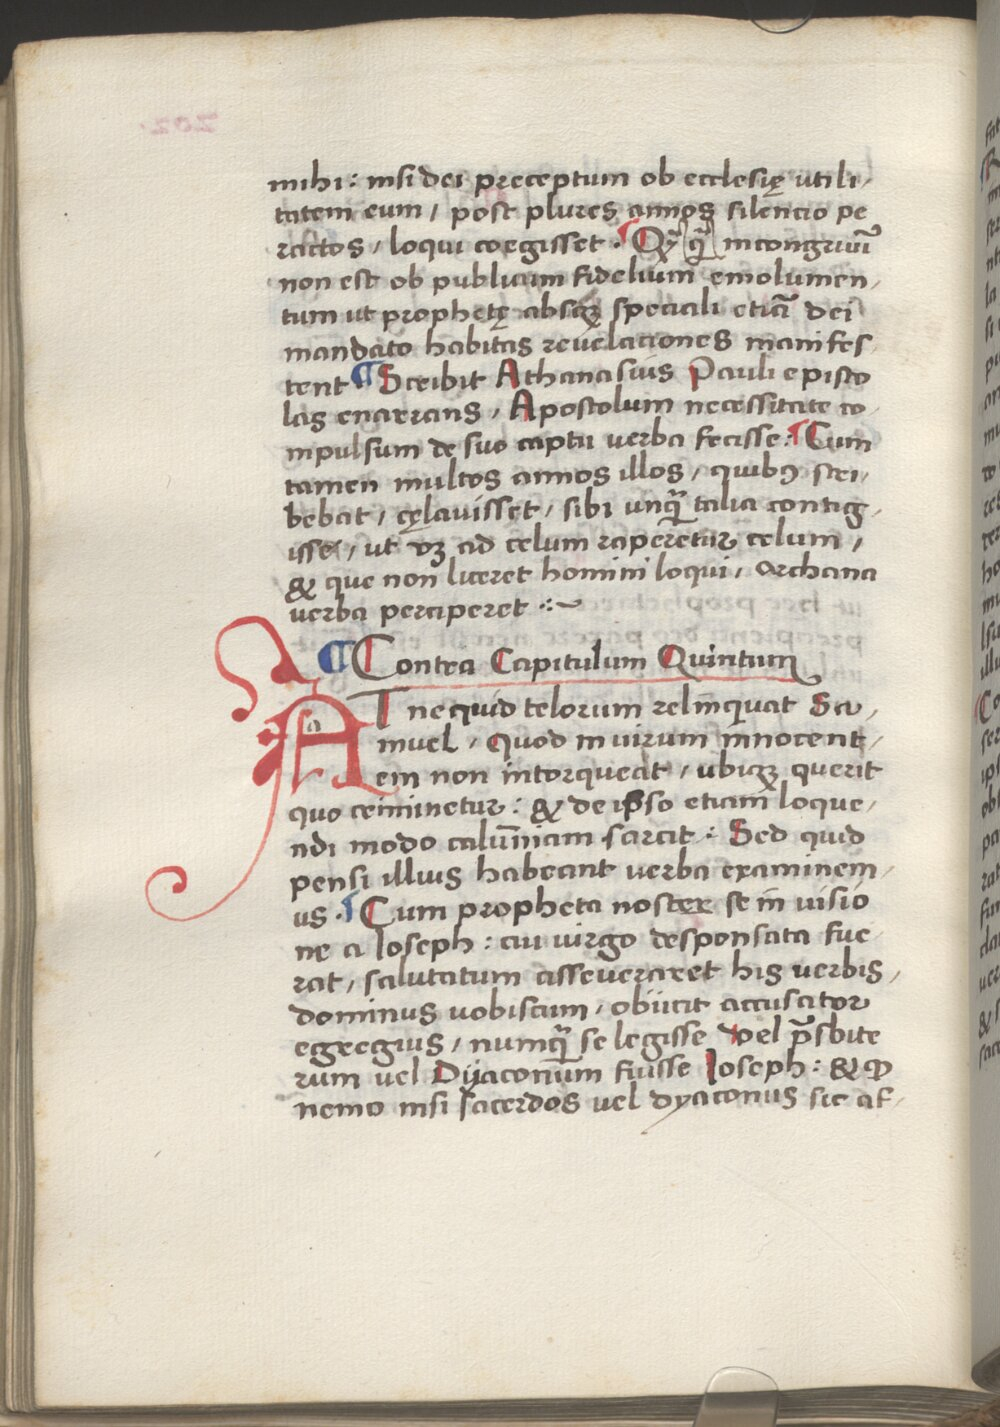 mihi: nisi dei preceptum ob ecclesię utili,
tatem eum, post plures annos silencio pe
ractos, loqui coegisset. ¶ Qr̄ q̄ incongruū
non est ob publicum fidelium emolumen,
tum ut prophetę absqꝫ speciali etiā dei
mandato habitas revelaciones manifes
tent ¶ Scribit Athanasius Pauli episto
las enarrans, Apostolum necessitate co
mpulsum de suo captu verba fecisse: ¶ Cum
tamen multos annos illos, quibꝰ scri,
bebat, cęlavisset, sibi unq̄ talia contig,
isse, ut vꝫ ad celum raperetur celum,
& que non liceret homini loqui, archana
verba perciperet :~
¶ Contra Capitulum Quintum
AT ne quid telorum relinquat Sa,
muel, quod in virum innocent,
em non intorqueat, ubiqꝫ querit
quo criminetur: & de ipso etiam loque,
ndi modo calum̄niam sarcit: Sed quid
pensi illius habeant verba examinem,
us. ¶ Cum propheta noster se in visio
ne a Ioseph: cui virgo desponsata fue
rat, salutatum asseveraret his verbis,
dominus vobiscum, obiicit accusator
egregius, numq̄ se legisse vel p̄sbite
rum vel Dyaconum fuisse Ioseph: & ꝙ
nemo nisi sacerdos vel dyaconus sic af,